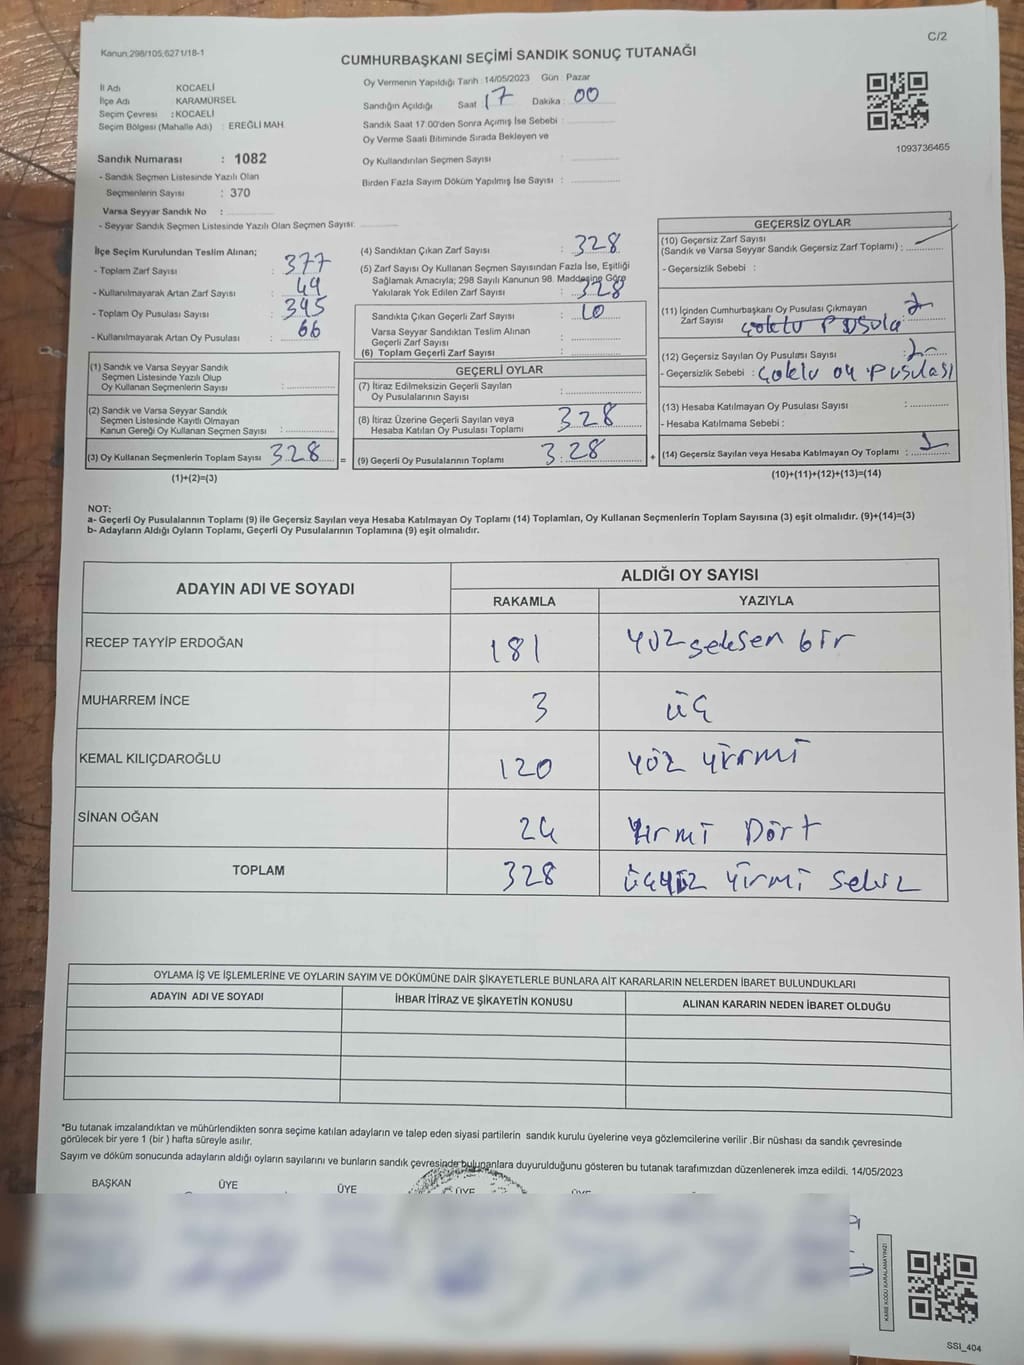 Kanun.298/105,6271/18-1
C/2
CUMHURBAŞKANI SEÇİMİ SANDIK SONUÇ TUTANAĞI
İl Adı KOCAELİ
İlçe Adı KARAMÜRSEL
Seçim Çevresi : KOCAELİ
Seçim Bölgesi (Mahalle Adı) : EREĞLİ MAH.
Sandık Numarası : 1082
- Sandık Seçmen Listesinde Yazılı Olan
Seçmenlerin Sayısı : 370
Varsa Seyyar Sandık No :
- Seyyar Sandık Seçmen Listesinde Yazılı Olan Seçmen Sayısı:
Oy Vermenin Yapıldığı Tarih :14/05/2023 Gün : Pazar
Sandığın Açıldığı Saat 17 Dakika : 00
Sandık Saat 17.00'den Sonra Açımış İse Sebebi :
Oy Verme Saati Bitiminde Sırada Bekleyen ve
Oy Kullandırılan Seçmen Sayısı :
Birden Fazla Sayım Döküm Yapılmış İse Sayısı :
1093736465
İlçe Seçim Kurulundan Teslim Alınan;
- Toplam Zarf Sayısı : 377
- Kullanılmayarak Artan Zarf Sayısı : 49
- Toplam Oy Pusulası Sayısı : 395
- Kullanılmayarak Artan Oy Pusulası : 66
(1) Sandık ve Varsa Seyyar Sandık
Seçmen Listesinde Yazılı Olup
Oy Kullanan Seçmenlerin Sayısı :
(2) Sandık ve Varsa Seyyar Sandık
Seçmen Listesinde Kayıtlı Olmayan
Kanun Gereği Oy Kullanan Seçmen Sayısı :
(3) Oy Kullanan Seçmenlerin Toplam Sayısı : 328 =
(1)+(2)=(3)
(4) Sandıktan Çıkan Zarf Sayısı : 328
(5) Zarf Sayısı Oy Kullanan Seçmen Sayısından Fazla İse, Eşitliği
Sağlamak Amacıyla; 298 Sayılı Kanunun 98. Maddesine Göre
Yakılarak Yok Edilen Zarf Sayısı : 328
Sandıkta Çıkan Geçerli Zarf Sayısı : 10
Varsa Seyyar Sandıktan Teslim Alınan
Geçerli Zarf Sayısı :
(6) Toplam Geçerli Zarf Sayısı :
GEÇERLİ OYLAR
(7) İtiraz Edilmeksizin Geçerli Sayılan
Oy Pusulalarının Sayısı :
(8) İtiraz Üzerine Geçerli Sayılan veya
Hesaba Katılan Oy Pusulası Toplamı : 328
(9) Geçerli Oy Pusulalarının Toplamı : 328 +
GEÇERSİZ OYLAR
(10) Geçersiz Zarf Sayısı
(Sandık ve Varsa Seyyar Sandık Geçersiz Zarf Toplamı) :
- Geçersizlik Sebebi :
(11) İçinden Cumhurbaşkanı Oy Pusulası Çıkmayan
Zarf Sayısı : Çoklu Pusula
(12) Geçersiz Sayılan Oy Pusulası Sayısı :
- Geçersizlik Sebebi : Çoklu oy pusulası
(13) Hesaba Katılmayan Oy Pusulası Sayısı :
- Hesaba Katılmama Sebebi :
(14) Geçersiz Sayılan veya Hesaba Katılmayan Oy Toplamı :
(10)+(11)+(12)+(13)=(14)
NOT:
a- Geçerli Oy Pusulalarının Toplamı (9) ile Geçersiz Sayılan veya Hesaba Katılmayan Oy Toplamı (14) Toplamları, Oy Kullanan Seçmenlerin Toplam Sayısına (3) eşit olmalıdır. (9)+(14)=(3)
b- Adayların Aldığı Oyların Toplamı, Geçerli Oy Pusulalarının Toplamına (9) eşit olmalıdır.
ADAYIN ADI VE SOYADI
ALDIĞI OY SAYISI
RAKAMLA YAZIYLA
RECEP TAYYİP ERDOĞAN 181 yüz seksen bir
MUHARREM İNCE 3 üç
KEMAL KILIÇDAROĞLU 120 yöz yirmi
SİNAN OĞAN 24 Yirmi Dört
TOPLAM 328 üçyüz yirmi sekiz
OYLAMA İŞ VE İŞLEMLERİNE VE OYLARIN SAYIM VE DÖKÜMÜNE DAİR ŞİKAYETLERLE BUNLARA AİT KARARLARIN NELERDEN İBARET BULUNDUKLARI
ADAYIN ADI VE SOYADI İHBAR İTİRAZ VE ŞİKAYETİN KONUSU ALINAN KARARIN NEDEN İBARET OLDUĞU
*Bu tutanak imzalandıktan ve mühürlendikten sonra seçime katılan adayların ve talep eden siyasi partilerin sandık kurulu üyelerine veya gözlemcilerine verilir .Bir nüshası da sandık çevresinde
görülecek bir yere 1 (bir ) hafta süreyle asılır.
Sayım ve döküm sonucunda adayların aldığı oyların sayılarını ve bunların sandık çevresinde bulunanlara duyurulduğunu gösteren bu tutanak tarafımızdan düzenlenerek imza edildi. 14/05/2023
BAŞKAN ÜYE ÜYE ÜYE
KARE KODU KARALAMAYINIZ!
SSİ_404